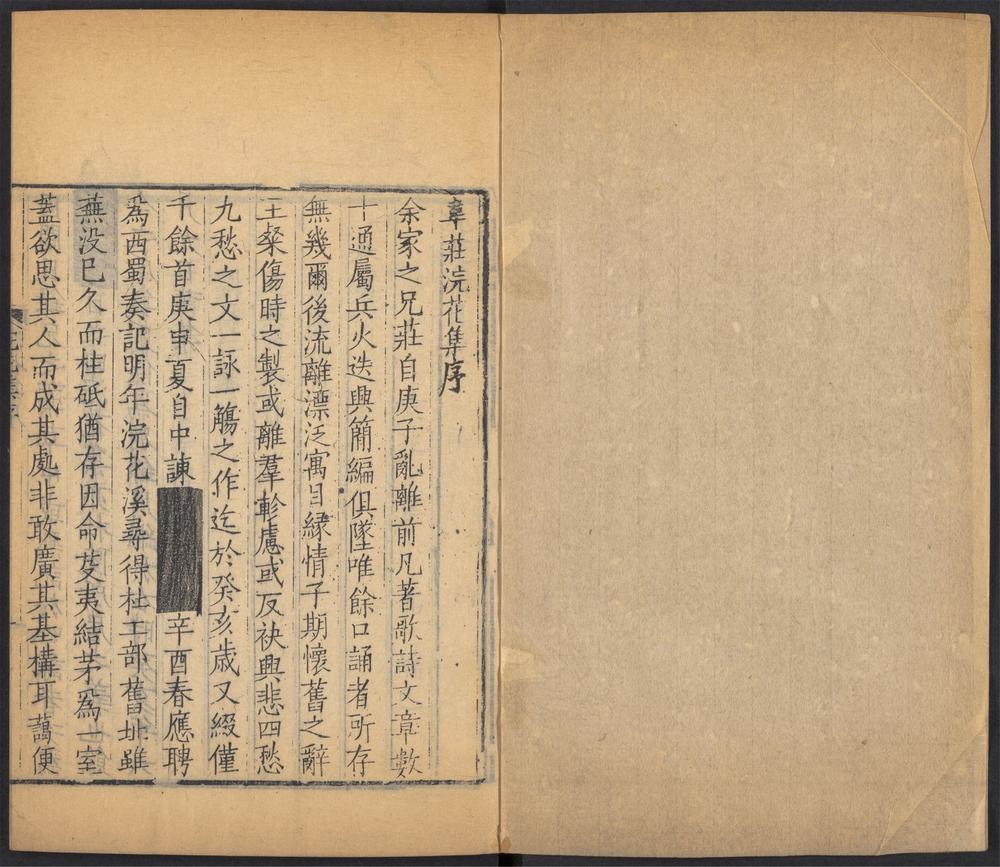 韋莊浣花集序
余家之兄莊自庚子亂離前凡著歌詩文章數
十通屬兵火迭興簡編俱墜唯餘口誦者所存
無幾爾後流離漂泛寓目緣情子期懷舊之辭
王粲傷時之製或離羣軫慮或反袂興悲四愁
九愁之文一詠一觴之作迄於癸亥歲又綴僅
千餘首庚申夏自中諫辛酉春應聘
爲西蜀奏記明年浣花溪尋得杜工部舊址雖
蕪没已久而柱砥猶存因命芟夷結茅爲一室
蓋欲思其人而成其處非敢廣其基構耳藹便